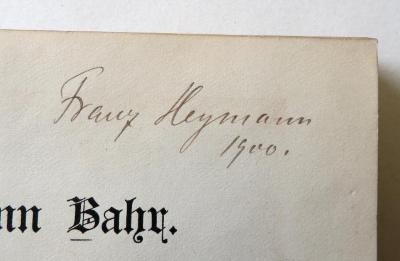 Franz Heymann
1900.
nn Bahr.